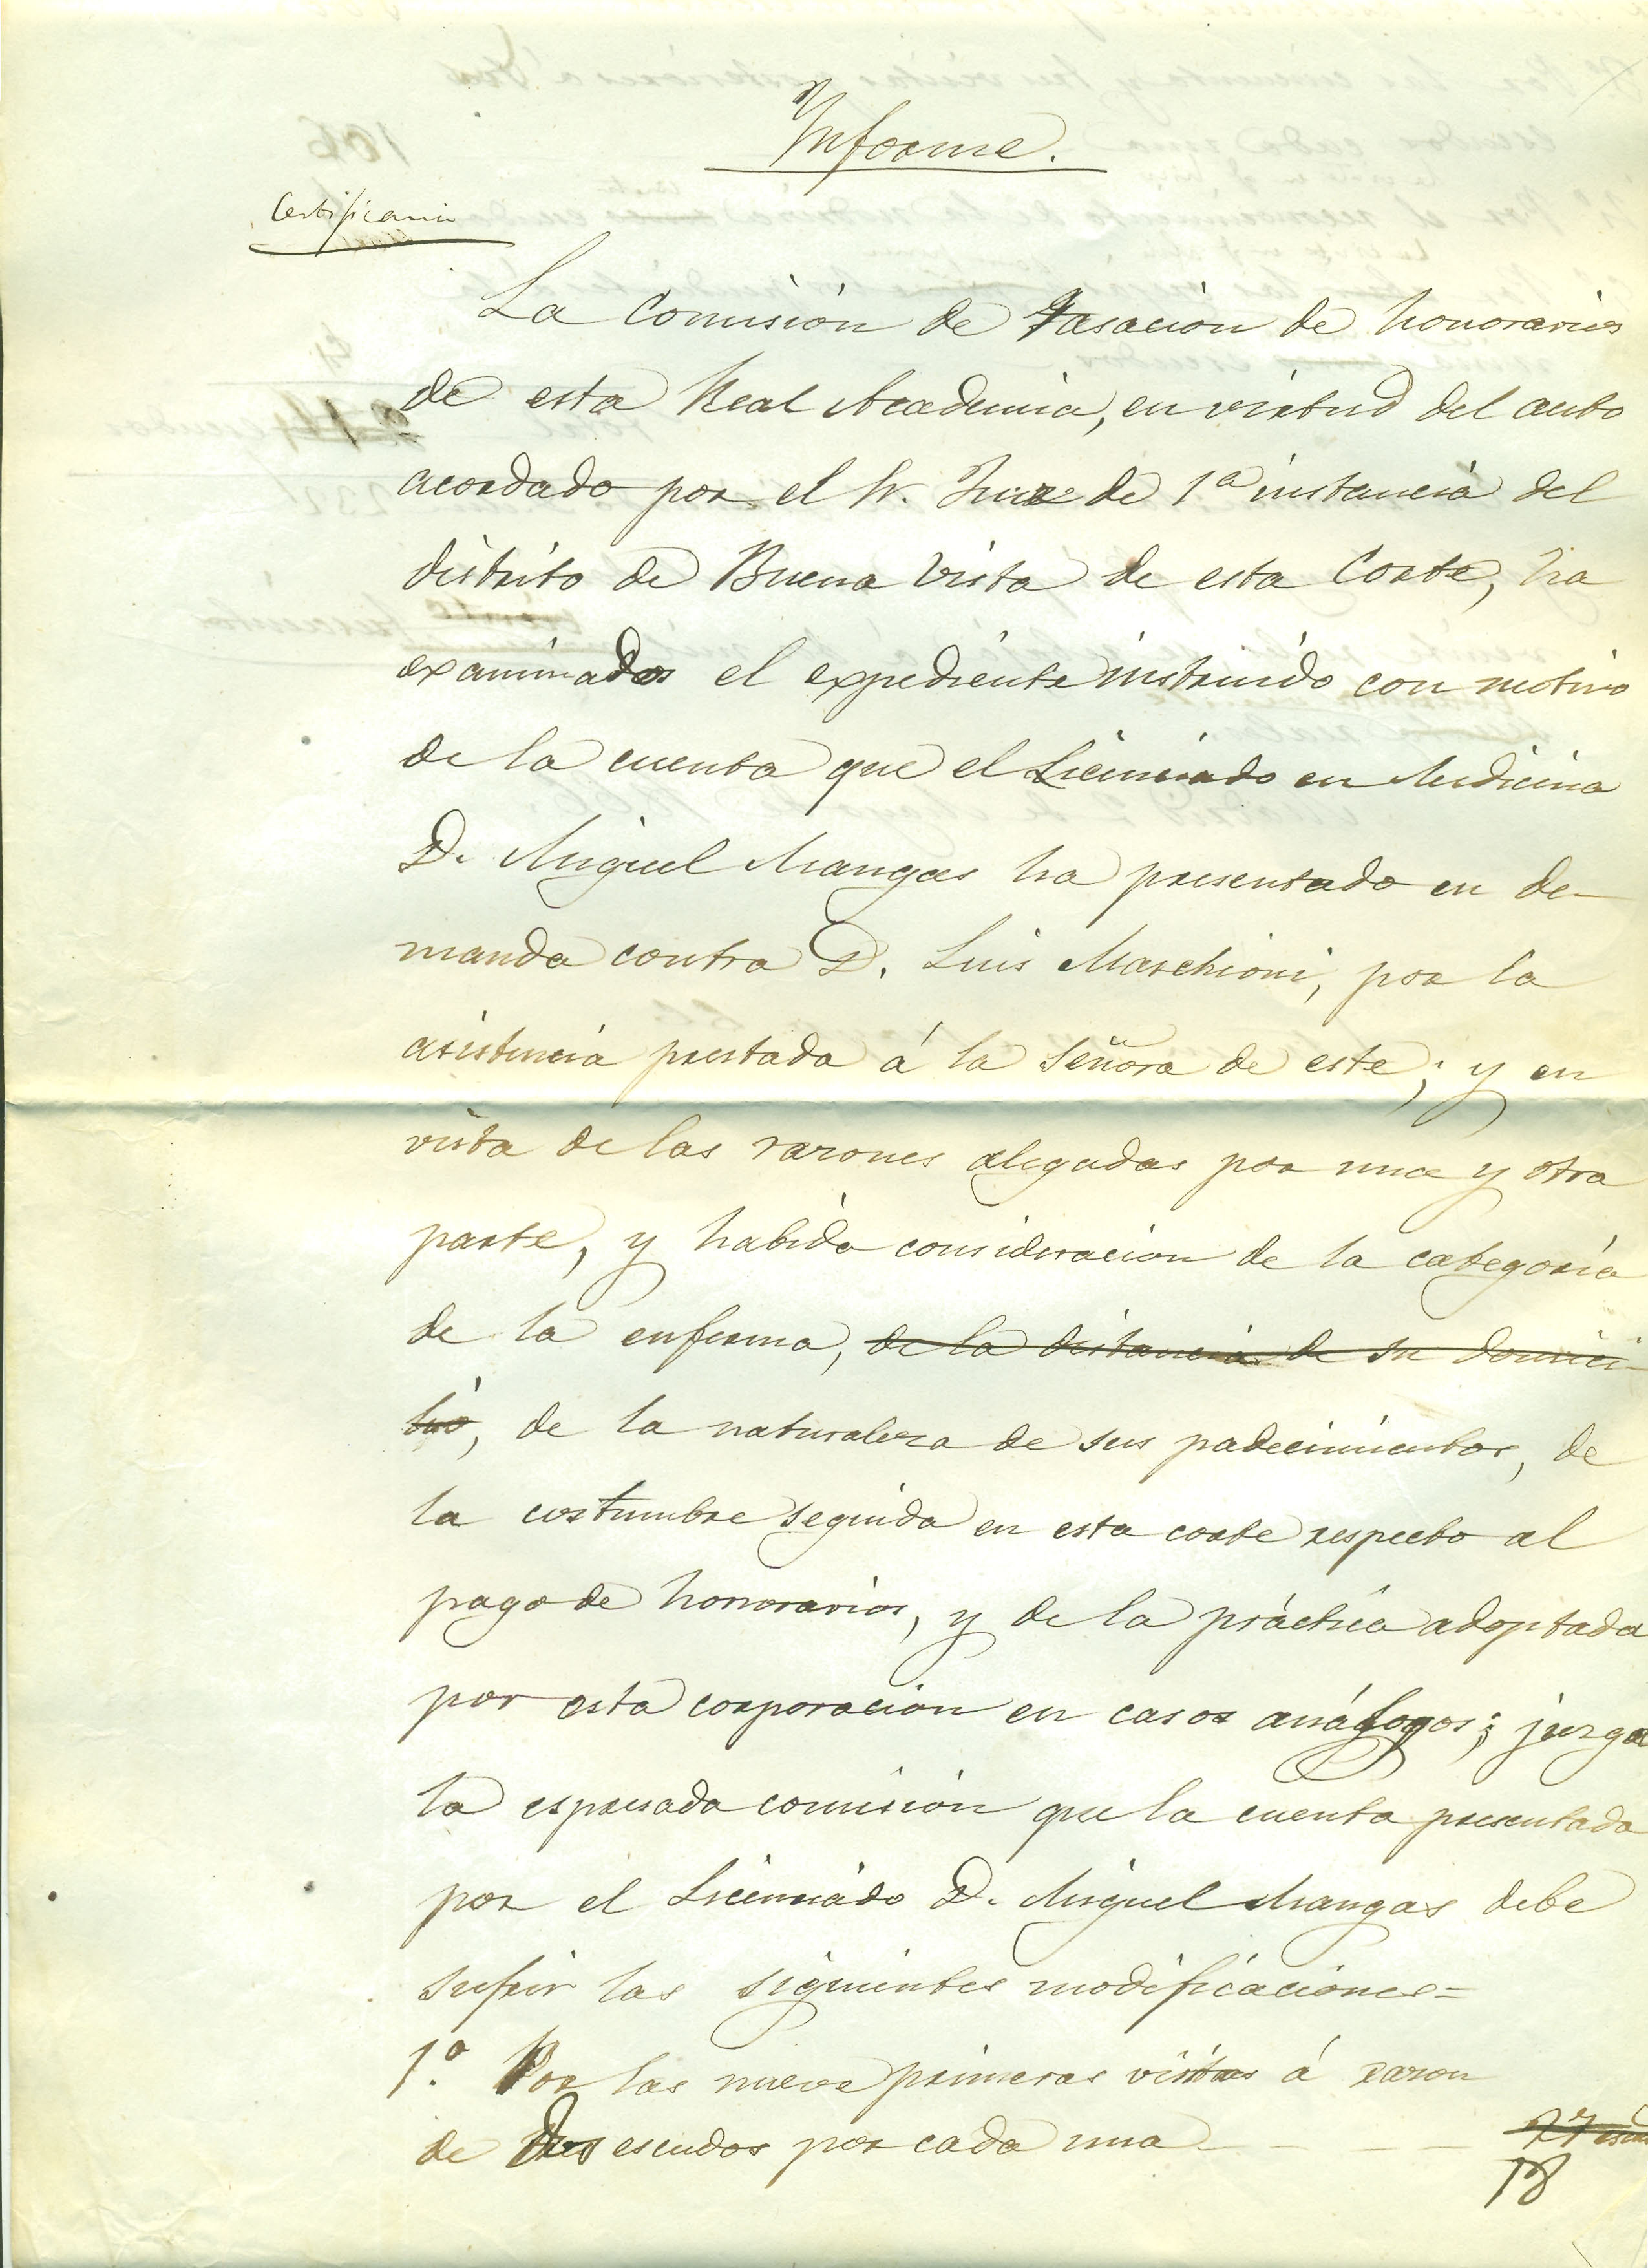 Informe.
Certificacion
La Comision de tasacion de honorarios
de esta Real Academia, en virtud del auto
acordado por el Sr. Juez de 1ª instancia del
distrito de Buena Vista de esta Corte, ha
examinado el expediente instruido con motivo
de la cuenta que el Licenciado en Medicina
D. Miguel Mangas ha presentado en de-
manda contra D. Luis Marchioni, por la
asistencia prestada á la Señora de este; y en
vista de las razones alegadas por una y otra
parte, y habida consideracion de la categoría
de la enferma, de la distancia de su domici-
lio, de la naturaleza de sus padecimientos, de
la costumbre seguida en esta corte respecto al
pago de honorarios, y de la práctica adoptada
por esta corporacion en casos análogos; juzga
la espresada comision que la cuenta presentada
por el Licenciado D. Miguel Mangas debe
sufrir las siguientes modificaciones=
1.º Por las nueve primeras visitas á razon
de dos escudos por cada una
27
18